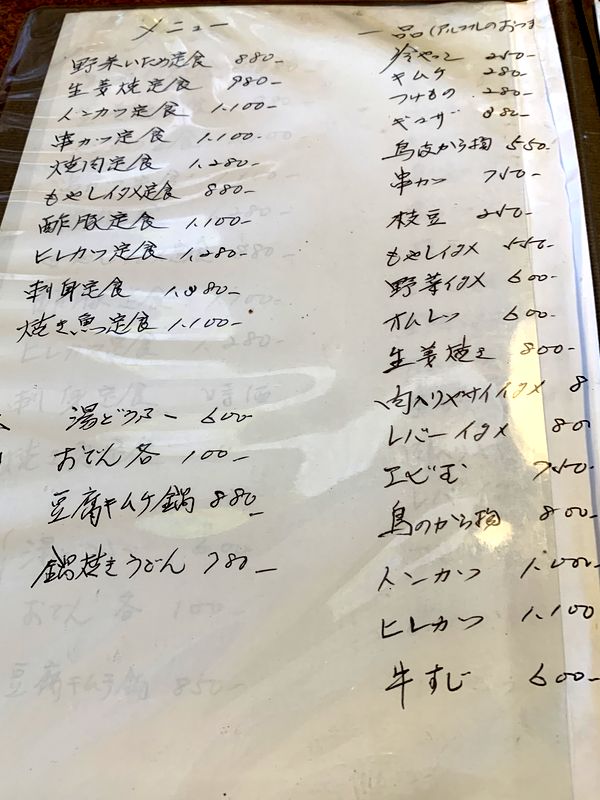 メニュー
野菜いため定食 880-
生姜焼定食 980-
トンカツ定食 1.100-
串カツ定食 1.100-
焼肉定食 1.280-
もやしイタメ定食 880-
酢豚定食 1.100-
ヒレカツ定食 1.280-
刺身定食
焼き魚定食 1.100-
湯どうふー 600-
おでん各 100-
豆腐キムケ鍋 880-
鍋焼きうどん 780-
一品(アルコールのおつま
冷やっこ 250-
キムケ 280-
つけもの 280-
ギョーザ
鳥皮から揚 550-
串カツ 750-
枝豆 250-
もやしイタメ 550-
野菜イタメ 600-
オムレツ 600-
生姜焼き 800-
肉入りヤサイイタメ 8
レバーイタメ 80
エビ 750-
鳥のから揚 800-
トンカツ 1.000-
ヒレカツ 1.100
牛すじ 600-